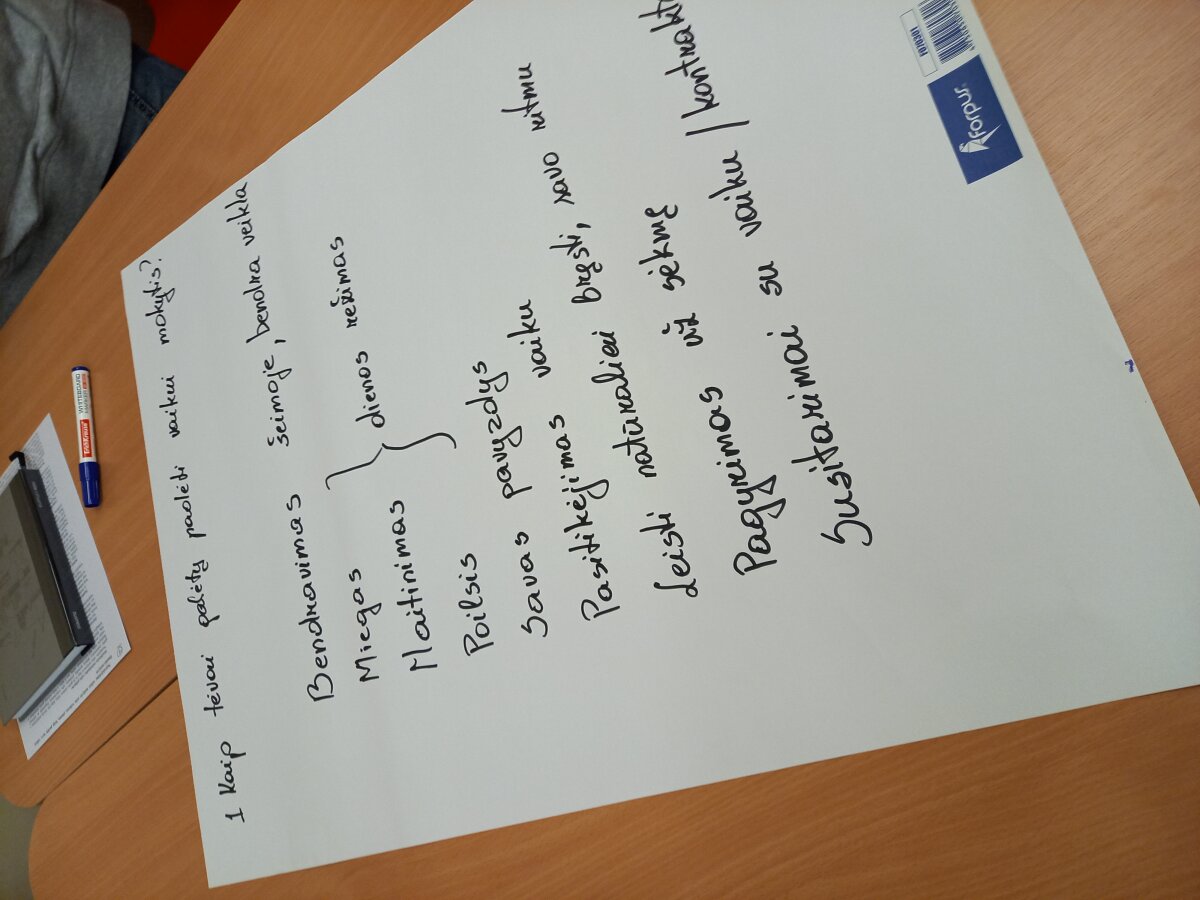 1 Kaip tėvai galėtų padėti vaikui mokytis?
Bendravimas šeimoje, bendra veikla
Miegas
Maitinimas } dienos režimas
Poilsis
Savas pavyzdys
Pasitikėjimas vaiku
Leisti natūraliai bręsti, savo ritmu
Pagyrimas už sėkmę
Susitarimai su vaiku / kontrakt
forpus
FO70301
WHITEBOARD
MARKER